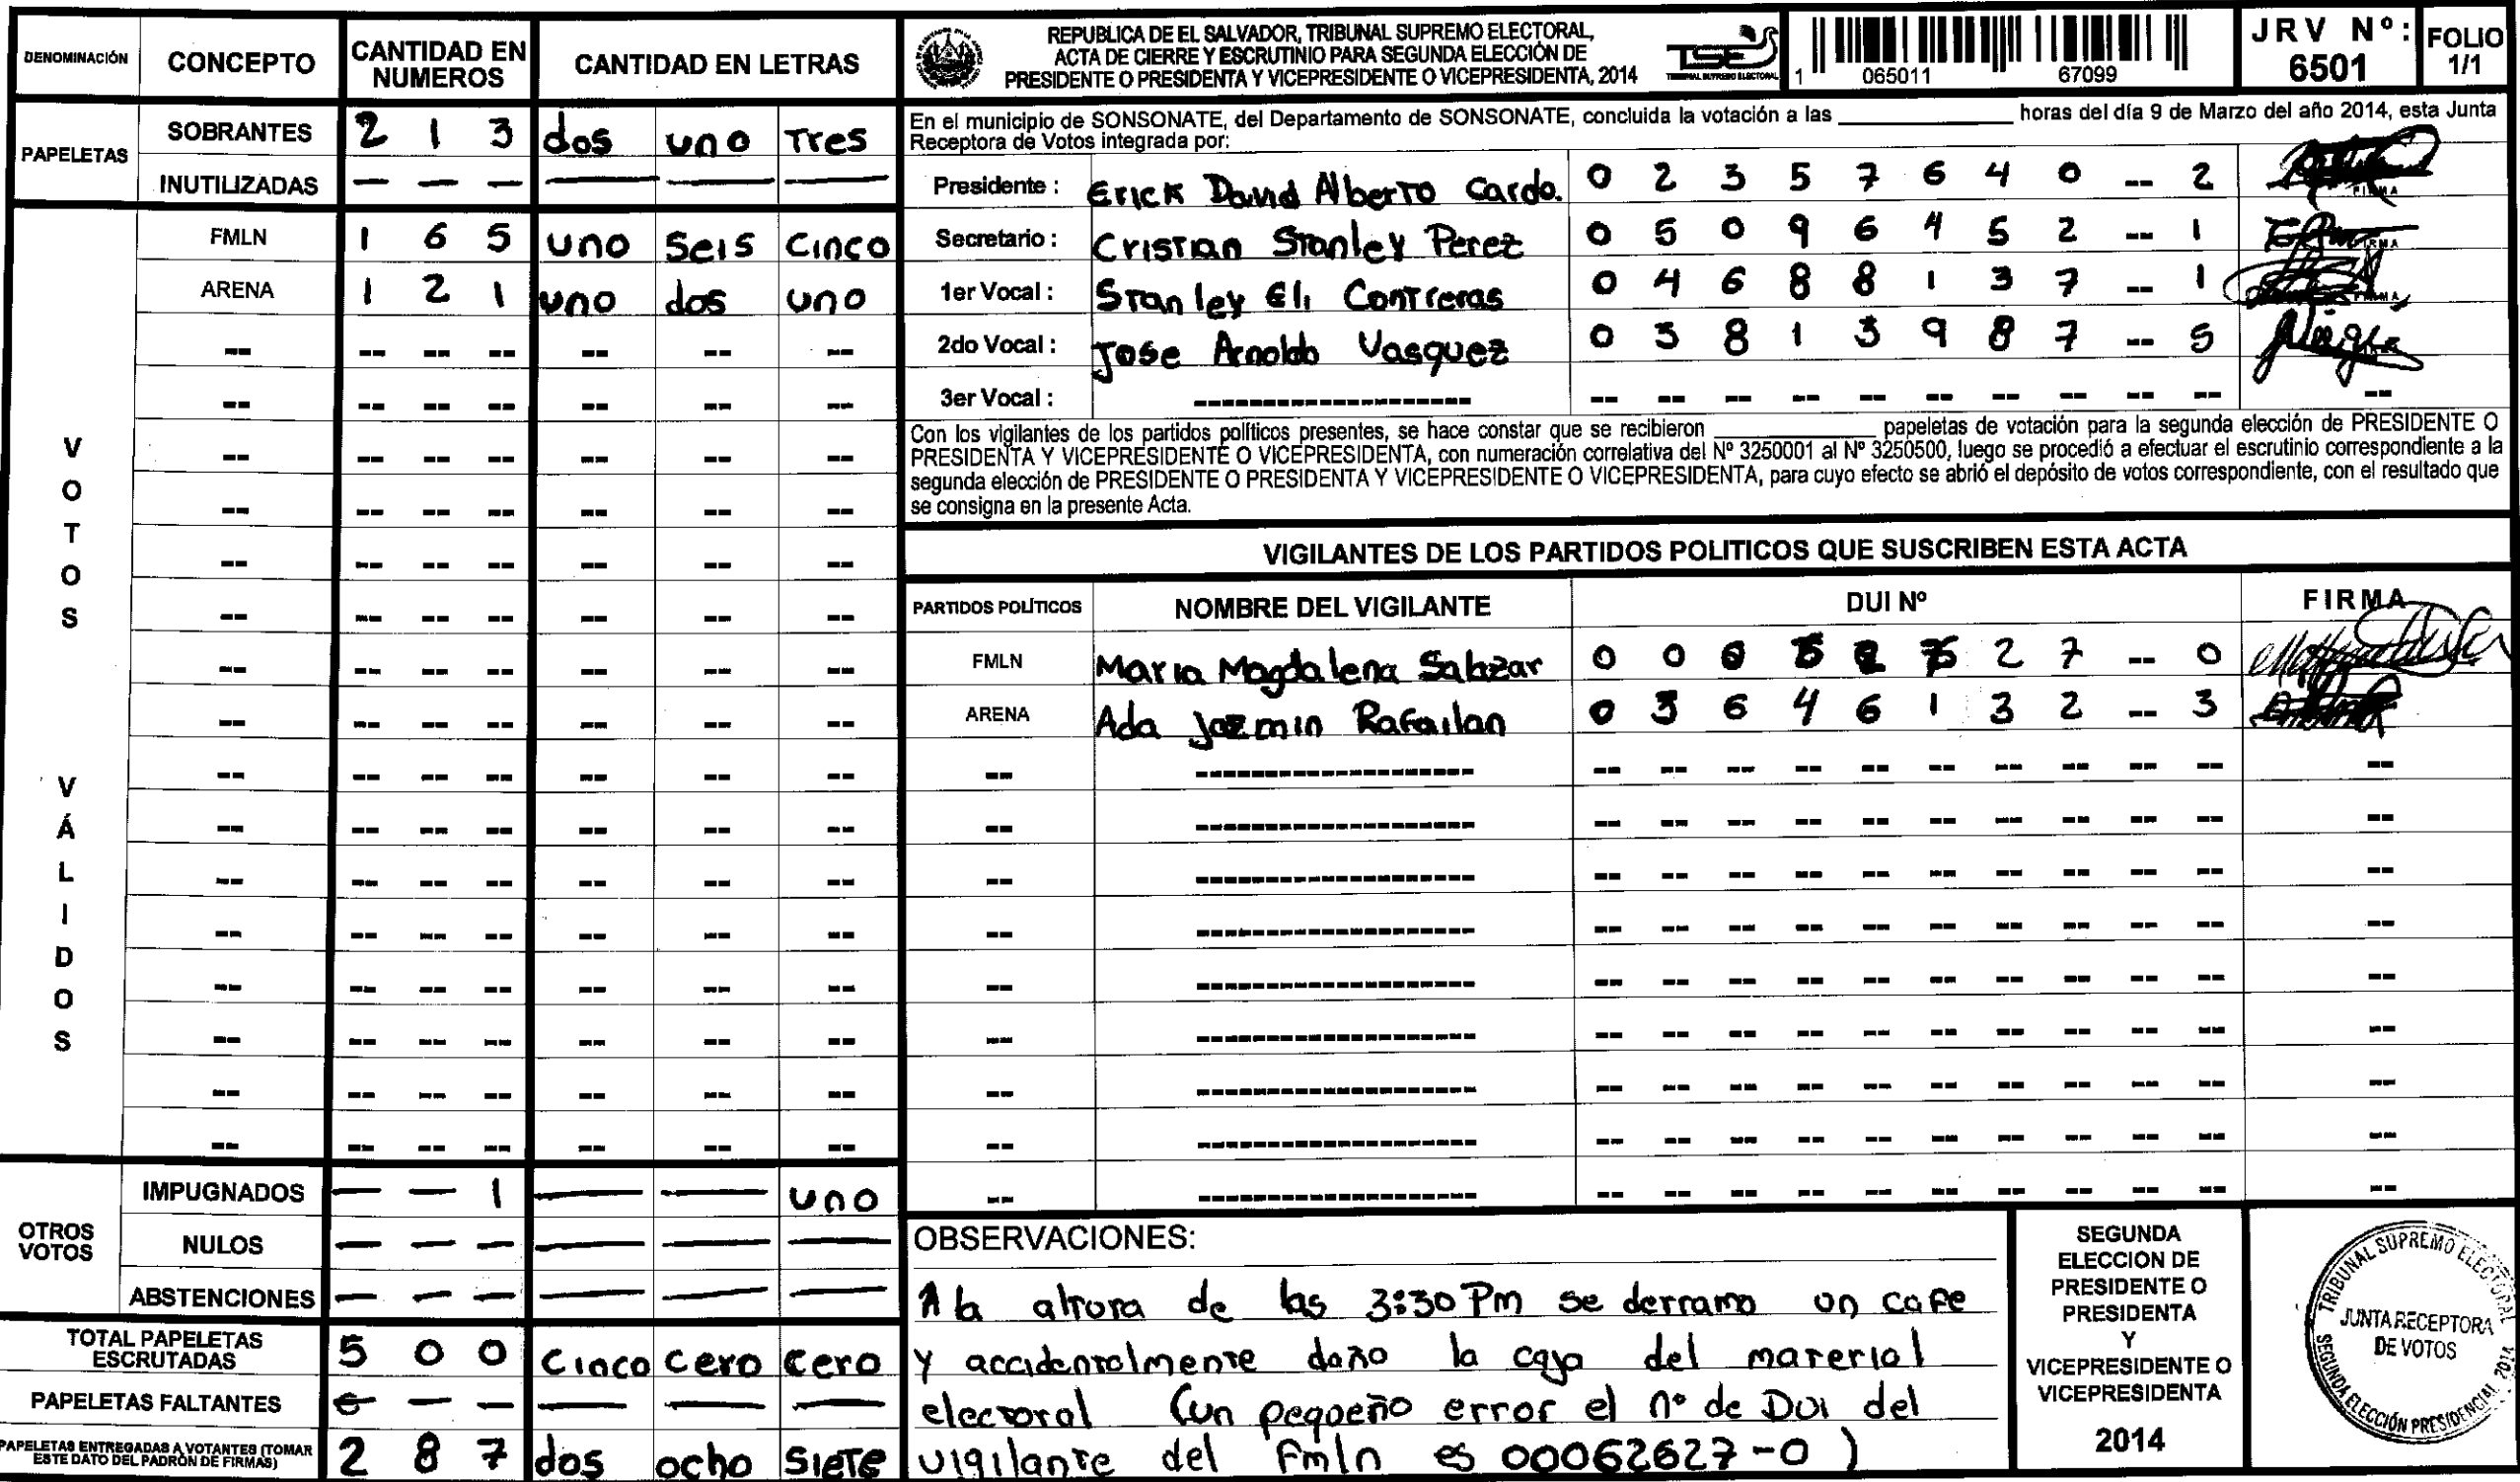 DENOMINACIÓN CONCEPTO CANTIDAD EN NUMEROS CANTIDAD EN LETRAS
PAPELETAS
SOBRANTES 2 1 3 dos uno Tres
INUTILIZADAS — — — — — —
VOTOS VÁLIDOS
FMLN 1 6 5 uno Seis Cinco
ARENA 1 2 1 uno dos uno
OTROS VOTOS
IMPUGNADOS — — 1 — — uno
NULOS — — — — — —
ABSTENCIONES — — — — — —
TOTAL PAPELETAS ESCRUTADAS 5 0 0 Cinco Cero Cero
PAPELETAS FALTANTES — — — — —
PAPELETAS ENTREGADAS A VOTANTES (TOMAR ESTE DATO DEL PADRÓN DE FIRMAS) 2 8 7 dos ocho SieTe
REPUBLICA DE EL SALVADOR, TRIBUNAL SUPREMO ELECTORAL,
ACTA DE CIERRE Y ESCRUTINIO PARA SEGUNDA ELECCIÓN DE
PRESIDENTE O PRESIDENTA Y VICEPRESIDENTE O VICEPRESIDENTA, 2014
TSE
TRIBUNAL SUPREMO ELECTORAL
1 065011 67099
JRV Nº: 6501
FOLIO 1/1
En el municipio de SONSONATE, del Departamento de SONSONATE, concluida la votación a las ____ horas del día 9 de Marzo del año 2014, esta Junta
Receptora de Votos integrada por:
Presidente : Erick David Alberto Cardo. 0 2 3 5 7 6 4 0 -- 2 FIRMA
Secretario : Cristian Stanley Perez 0 5 0 9 6 4 5 2 -- 1
1er Vocal : Stanley Eli Contreras 0 4 6 8 8 1 3 7 -- 1
2do Vocal : Jose Arnoldo Vasquez 0 3 8 1 3 9 8 7 -- 5
3er Vocal :
Con los vigilantes de los partidos políticos presentes, se hace constar que se recibieron ____ papeletas de votación para la segunda elección de PRESIDENTE O
PRESIDENTA Y VICEPRESIDENTE O VICEPRESIDENTA, con numeración correlativa del Nº 3250001 al Nº 3250500, luego se procedió a efectuar el escrutinio correspondiente a la
segunda elección de PRESIDENTE O PRESIDENTA Y VICEPRESIDENTE O VICEPRESIDENTA, para cuyo efecto se abrió el depósito de votos correspondiente, con el resultado que
se consigna en la presente Acta.
VIGILANTES DE LOS PARTIDOS POLITICOS QUE SUSCRIBEN ESTA ACTA
PARTIDOS POLÍTICOS NOMBRE DEL VIGILANTE DUI Nº FIRMA
FMLN Maria Magdalena Salazar 0 0 2 7 -- 0
ARENA Ada Jazmin Rafailan 0 3 6 4 6 1 3 2 -- 3
OBSERVACIONES:
A la altura de las 3:30 Pm se derramo un cafe
y accidentalmente daño la caja del material
electoral (un pequeño error el nº de Dui del
vigilante del Fmln es 00062627-0 )
SEGUNDA
ELECCION DE
PRESIDENTE O
PRESIDENTA
Y
VICEPRESIDENTE O
VICEPRESIDENTA
2014
TRIBUNAL SUPREMO ELECTORAL
JUNTA RECEPTORA
DE VOTOS
SEGUNDA ELECCIÓN PRESIDENCIAL 2014